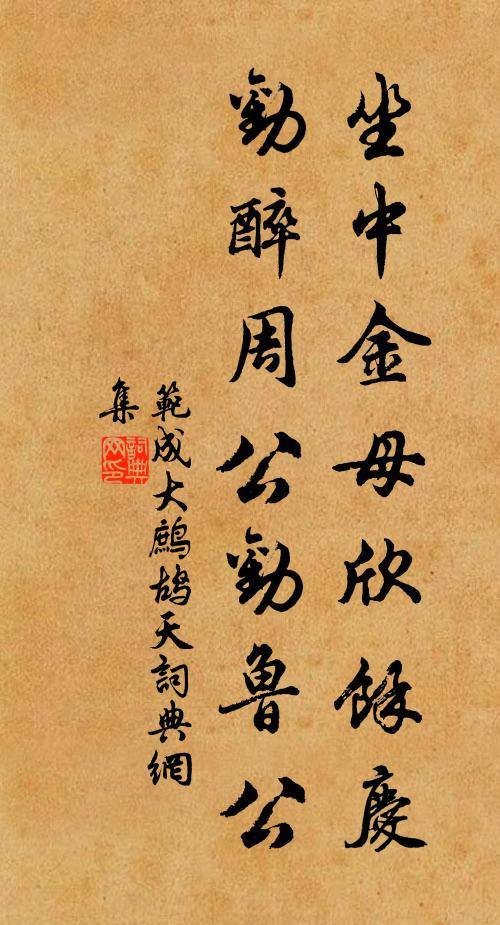 坐中金母欣餘慶
勸醉周公勸魯公
範成大鷓鴣天詞典網
集
詞典网印